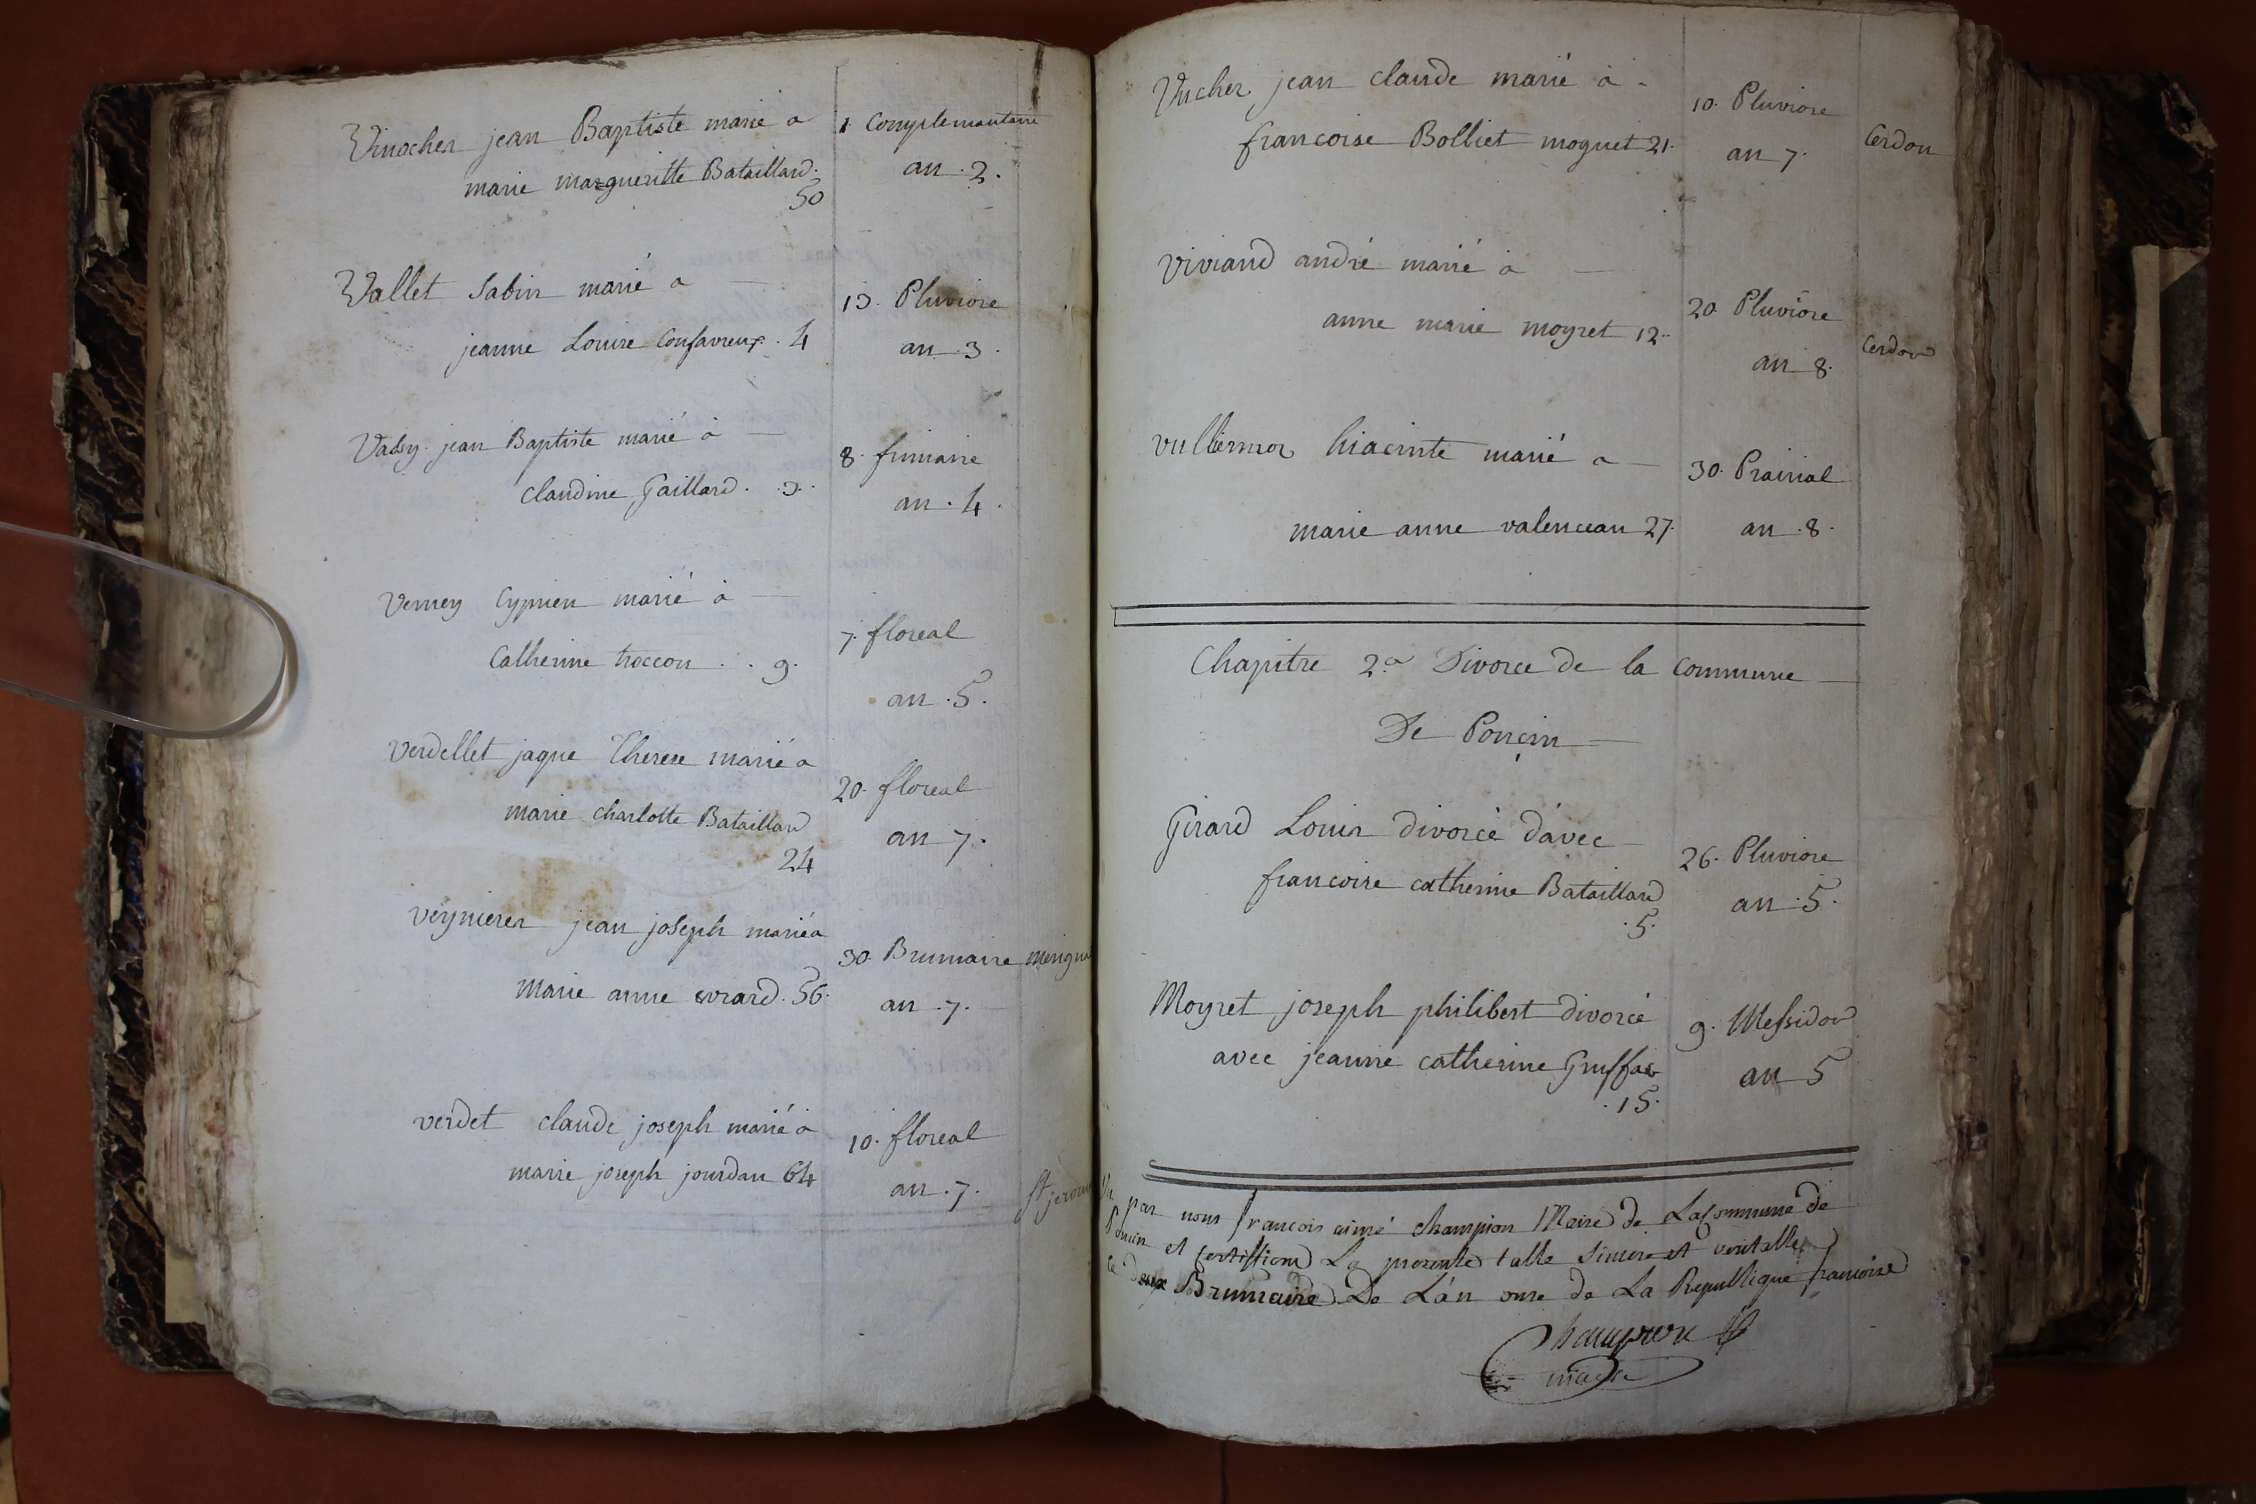 Vinocher jean Baptiste marié a
1 Complemantaire
marie margueritte Bataillard.
an 2.
50
Vallet Sabin marié a
13. Pluviose
jeanne Louise Confavreux. 4
an 3.
jean Baptiste marié à
8. frimaire
Claudine Gaillard. 3.
an. 4.
Verney Cyprien marié à
7. floreal
Catherine troccon . . 9.
an. 5.
Verdellet jaque Therese marié a
20. floreal
marie charlotte Bataillard
an 7.
24
veynieres jean joseph marié a
30. Brumaire
marie anne evrard. 56.
an. 7.
verdet claude joseph marié a
10. floreal
marie joseph jourdan 64
an. 7.
St jerome
Vucher jean claude marié à
10. Pluviose
francoise Bolliet moguet 21.
an 7.
Cerdon
Viviand andré marié à
20 Pluviose
anne marie moyret 12.
Cerdon
an 8.
vullermoz hiacinte marié a
30. Prairial
marie anne valenceau 27.
an. 8.
Chapitre 2.e Divorce de la Commune
De Poncin
Girard Louis divorcé d'avec
26. Pluviose
francoise catherine Bataillard
an. 5.
.5.
Moyret joseph philibert divorcé
9. Messidor
avec jeanne catherine Gruffaz
an 5
.15.
Vu par nous francois aimé Champion Maire de La Commune de
Poncin et Certiffions La presente table sincere et veritable
ce deux Brumaire De L'an onse de La Republique francoise
Champion
maire